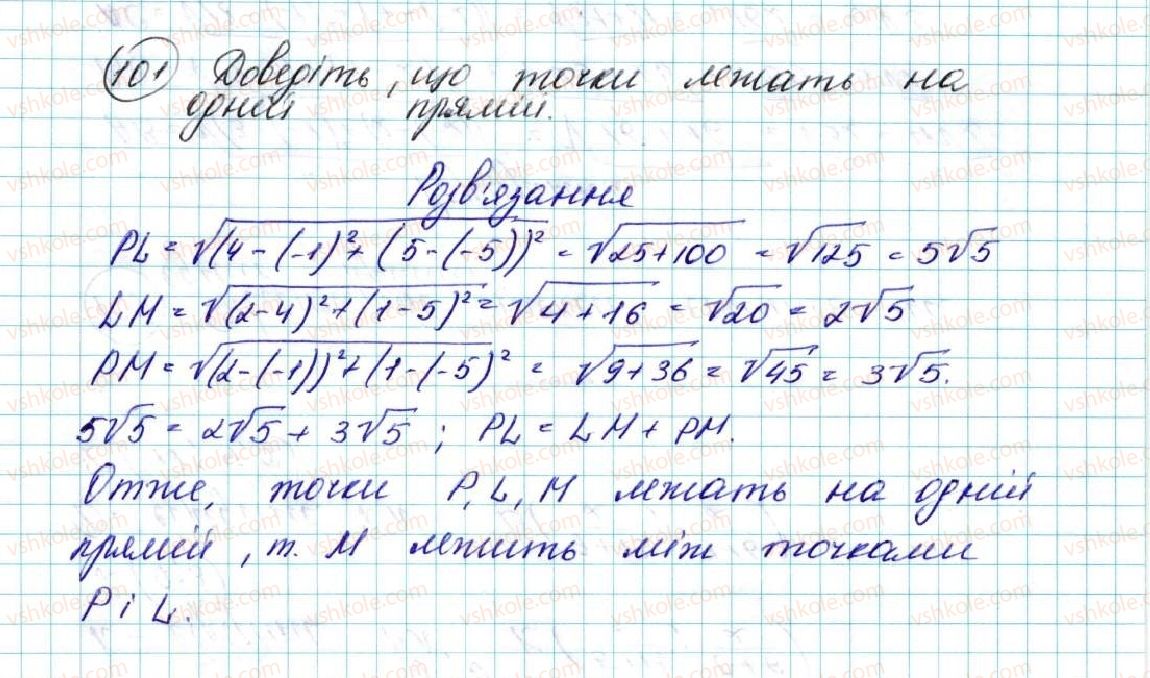 101 Доведіть, що точки лежать на
одній прямій.
Розв'язання
PL = √(4-(-1)²+(5-(-5))² = √25+100 = √125 = 5√5
LM = √(2-4)²+(1-5)² = √4+16 = √20 = 2√5
PM = √(2-(-1))²+(1-(-5)² = √9+36 = √45 = 3√5.
5√5 = 2√5 + 3√5 ; PL = LM + PM.
Отже, точки P, L, M лежать на одній
прямій, т. M лежить між точками
P і L.